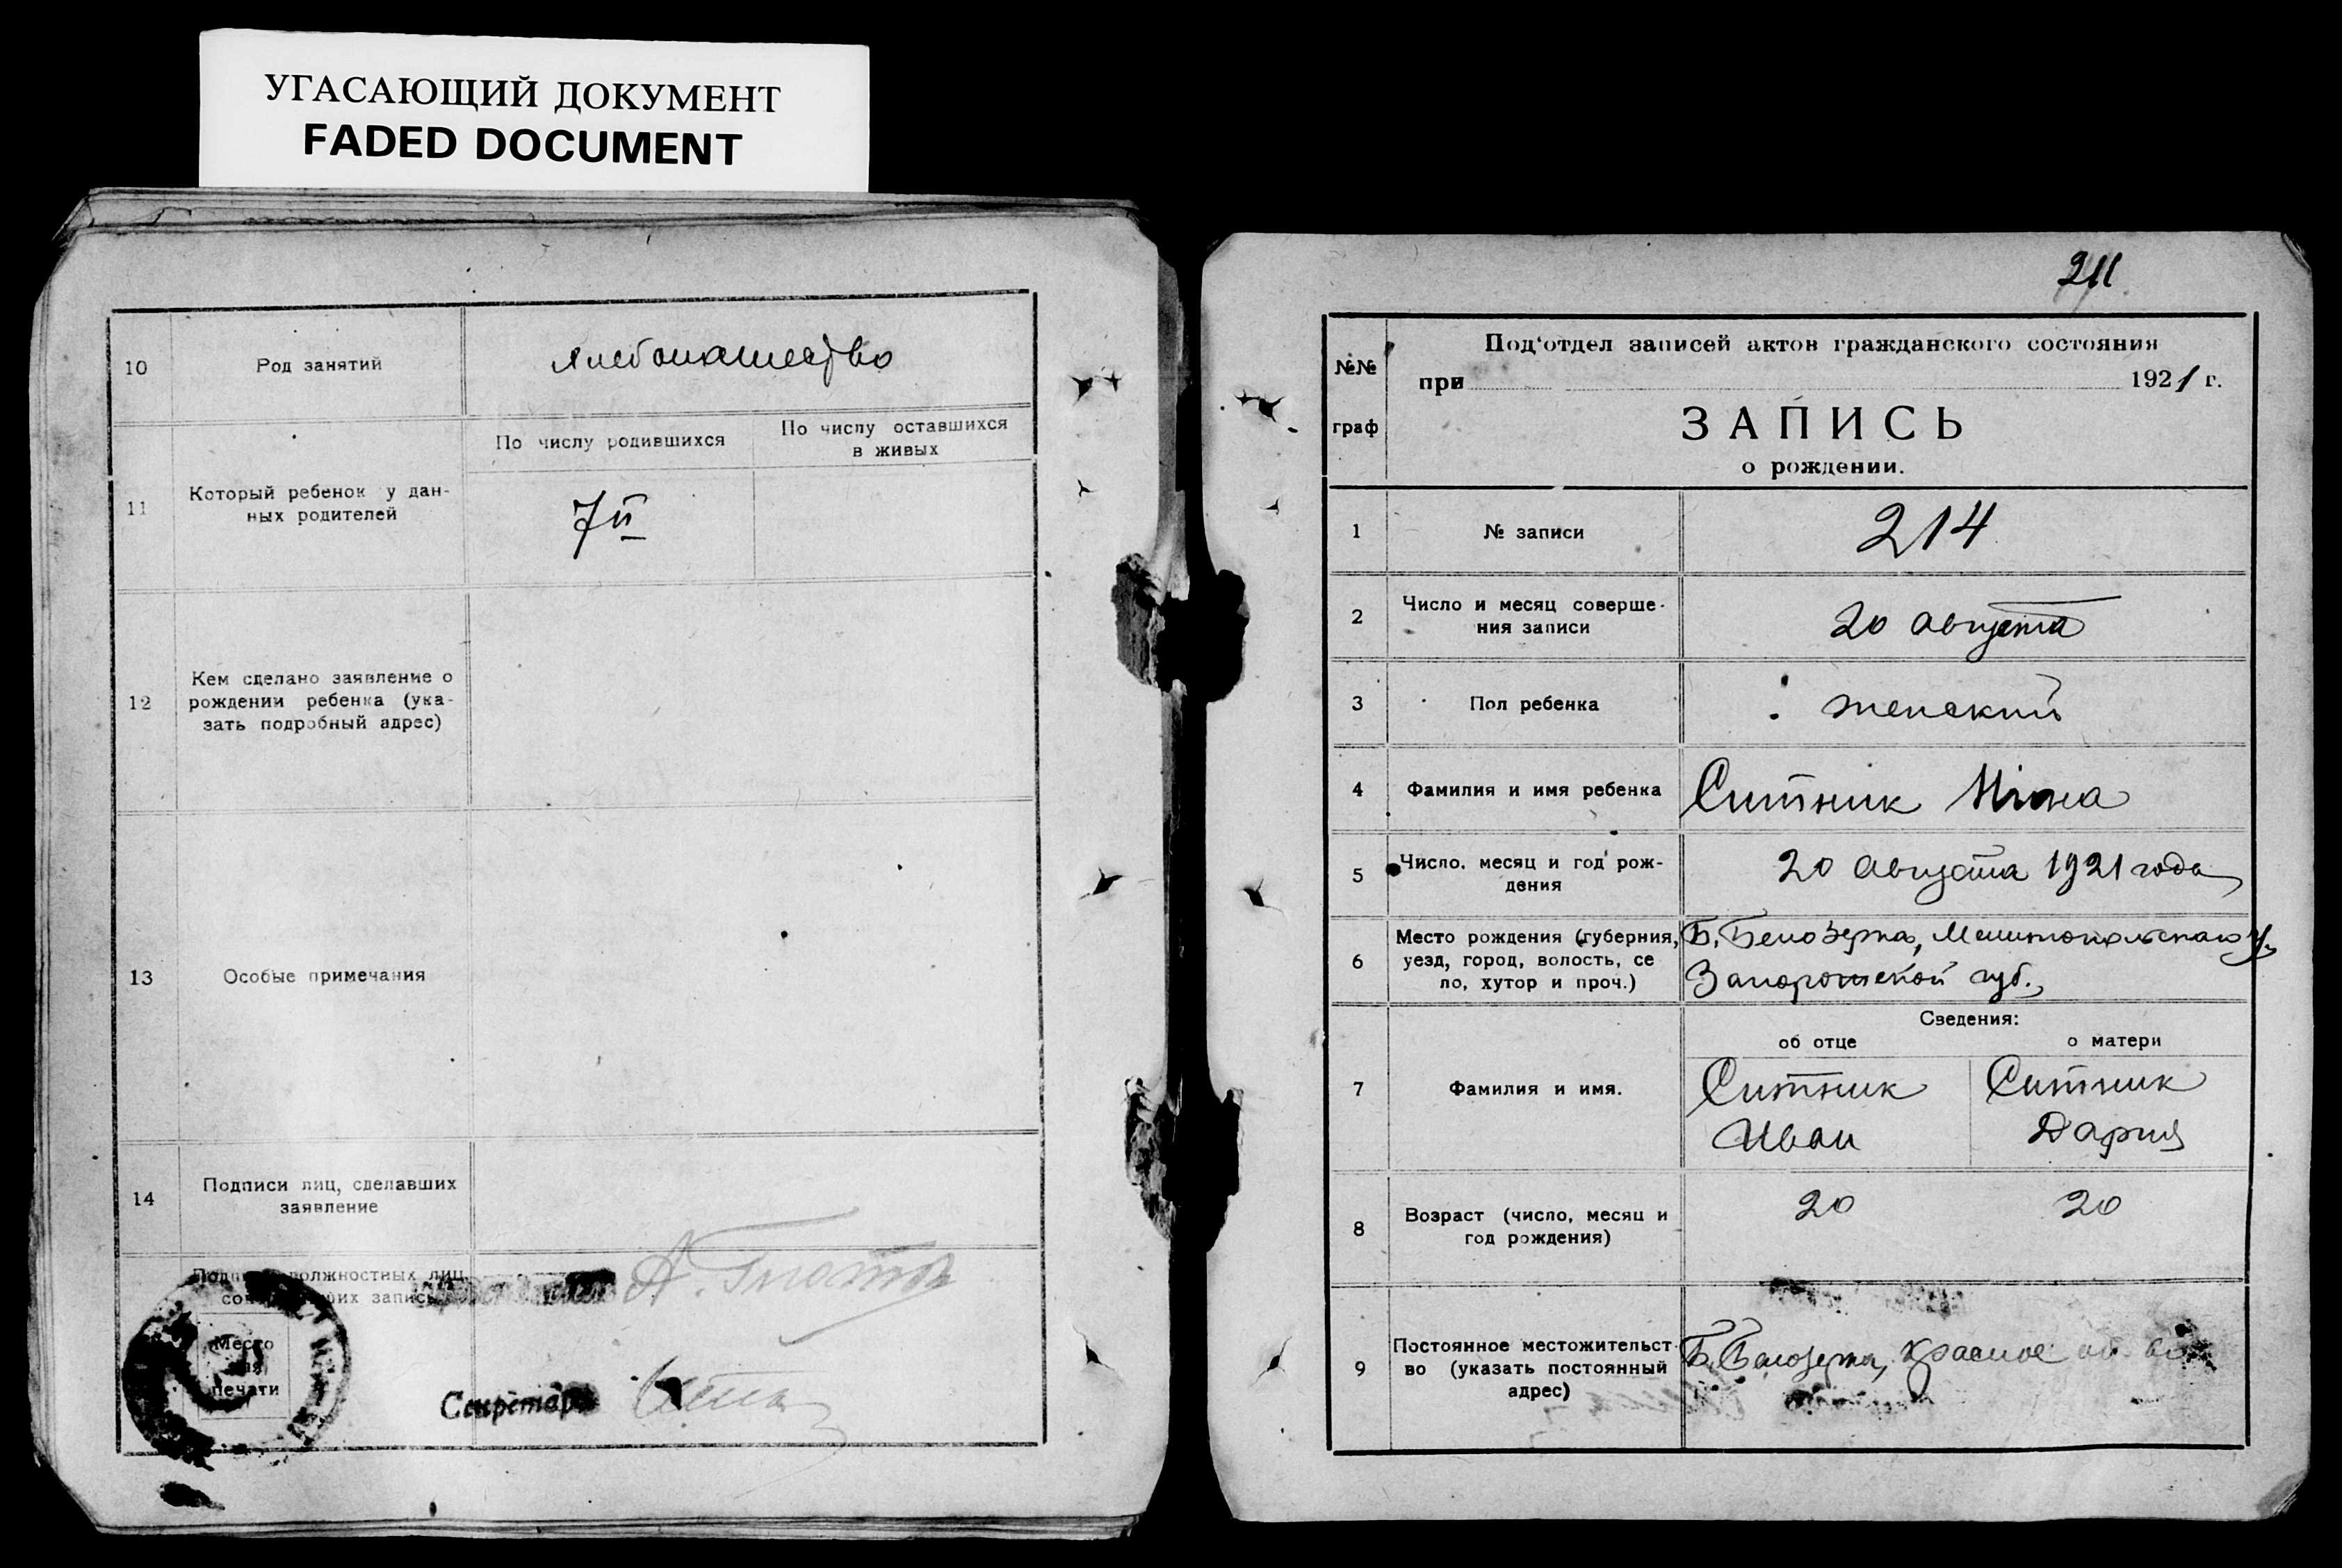 УГАСАЮЩИЙ ДОКУМЕНТ
FADED DOCUMENT
10
Род занятий
хлебопашество
11
Который ребенок у дан-
ных родителей
По числу родившихся
По числу оставшихся
в живых
7й
12
Кем сделано заявление о
рождении ребенка (ука-
зать подробный адрес)
13
Особые примечания
14
Подписи лиц, сделавших
заявление
должностных лиц
запись
А.
Место
для
печати
Секретарь
211
№№
граф
Под'отдел записей актов гражданского состояния
при 1921 г.
ЗАПИСЬ
о рождении.
1
№ записи
214
2
Число и месяц соверше-
ния записи
20 августа
3
Пол ребенка
женский
4
Фамилия и имя ребенка
Ситник Нiна
5
Число, месяц и год рож-
дения
20 Августа 1921 года
6
Место рождения (губерния,
уезд, город, волость, се
ло, хутор и проч.)
Б. Белозерка, Мелитопольскаго у.
Запорожской губ.,
Сведения:
об отце
о матери
7
Фамилия и имя.
Ситник
Иван
Ситник
Дария
8
Возраст (число, месяц и
год рождения)
20
20
9
Постоянное местожительст-
во (указать постоянный
адрес)
Б. Белозерка, Красное